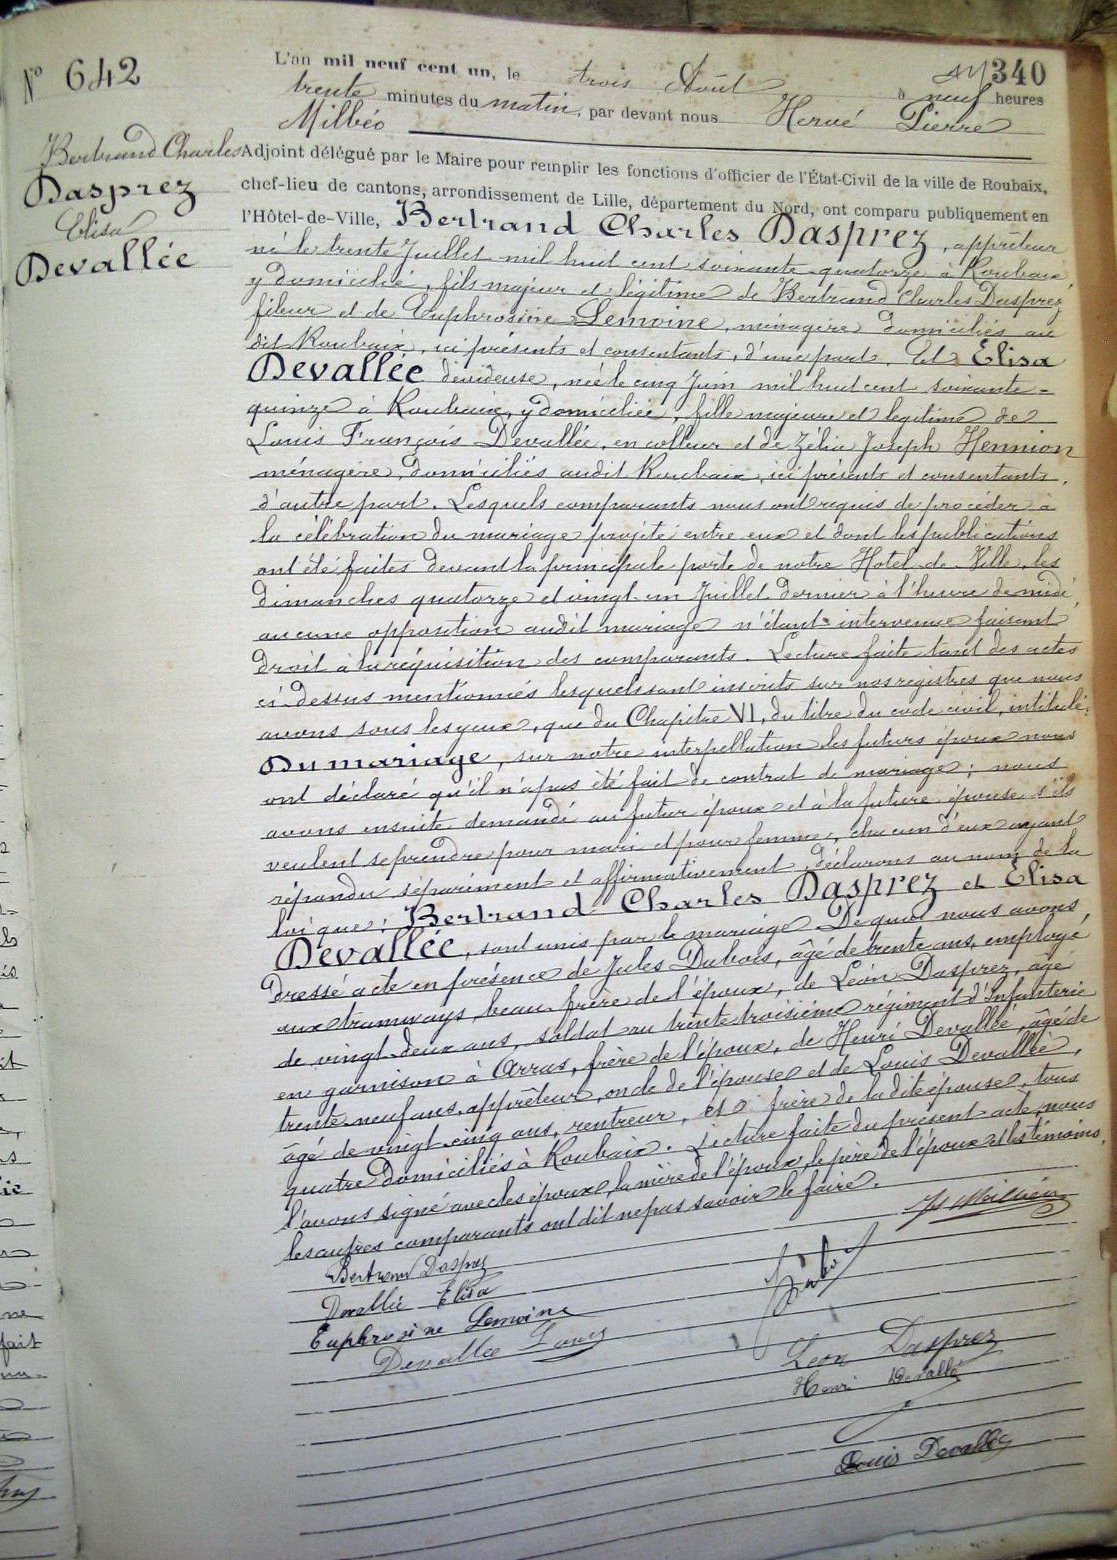 N° 642
340
Bertrand Charles
Dasprez
Elisa
Devallée
L'an mil neuf cent un, le trois Août à neuf heures
trente minutes du matin, par devant nous Hervé Pierre
Milbéo
Adjoint délégué par le Maire pour remplir les fonctions d'officier de l'État-Civil de la ville de Roubaix,
chef-lieu de cantons, arrondissement de Lille, département du Nord, ont comparu publiquement en
l'Hôtel-de-Ville, Bertrand Charles Dasprez, apprêteur
né le trente Juillet mil huit cent soixante-quatorze à Roubaix
y domicilié, fils majeur et légitime de Bertrand Charles Dasprez,
fileur et de Euphrosine Lemoine, ménagère domiciliés au
dit Roubaix, ici présents et consentants, d'une part. Et Élisa
Devallée dévideuse, née le cinq Juin mil huit cent soixante-
quinze à Roubaix, y domiciliée, fille majeure et légitime de
Louis François Devallée, encolleur et de Zélie Joseph Hennion
ménagère, domiciliés audit Roubaix, ici présents et consentants,
d'autre part. Lesquels comparants nous ont requis de procéder à
la célébration du mariage projeté entre eux et dont les publications
ont été faites devant la principale porte de notre Hotel-de-Ville, les
dimanches quatorze et vingt-un Juillet dernier à l'heure de midi,
aucune opposition audit mariage n'étant intervenue faisant
droit à la réquisition des comparants. Lecture faite tant des actes
ci-dessus mentionnés lesquels sont inscrits sur nos registres que nous
avons sous les yeux, que du Chapitre VI, du titre du code civil, intitulé:
Du mariage, sur notre interpellation les futurs époux nous
ont déclaré qu'il n'a pas été fait de contrat de mariage; nous
avons ensuite demandé au futur époux et à la future épouse s'ils
veulent se prendre pour mari et pour femme, chacun d'eux ayant
répondu séparément et affirmativement, déclarons au nom de la
loi que: Bertrand Charles Dasprez et Élisa
Devallée, sont unis par le mariage. De quoi nous avons
dressé acte en présence de Jules Dubois, âgé de trente ans, employé
aux tramways, beau-frère de l'époux, de Léon Dasprez, âgé
de vingt-deux ans, soldat au trente troisième régiment d'Infanterie
en garnison à Arras, frère de l'époux, de Henri Devallée, âgé de
trente-neuf ans, apprêteur, oncle de l'épouse et de Louis Devallée,
âgé de vingt-cinq ans, rentreur, et frère de la dite épouse, tous
quatre domiciliés à Roubaix. Lecture faite du présent acte, nous
l'avons signé avec les époux, la mère de l'époux, le père de l'époux et les témoins,
les autres comparants ont dit ne pas savoir le faire.
Bertrand Dasprez
Devallée Elisa
Euphrosine Lemoine
Devallée Louis
Léon Dasprez
Henri Devallée
Louis Devallée